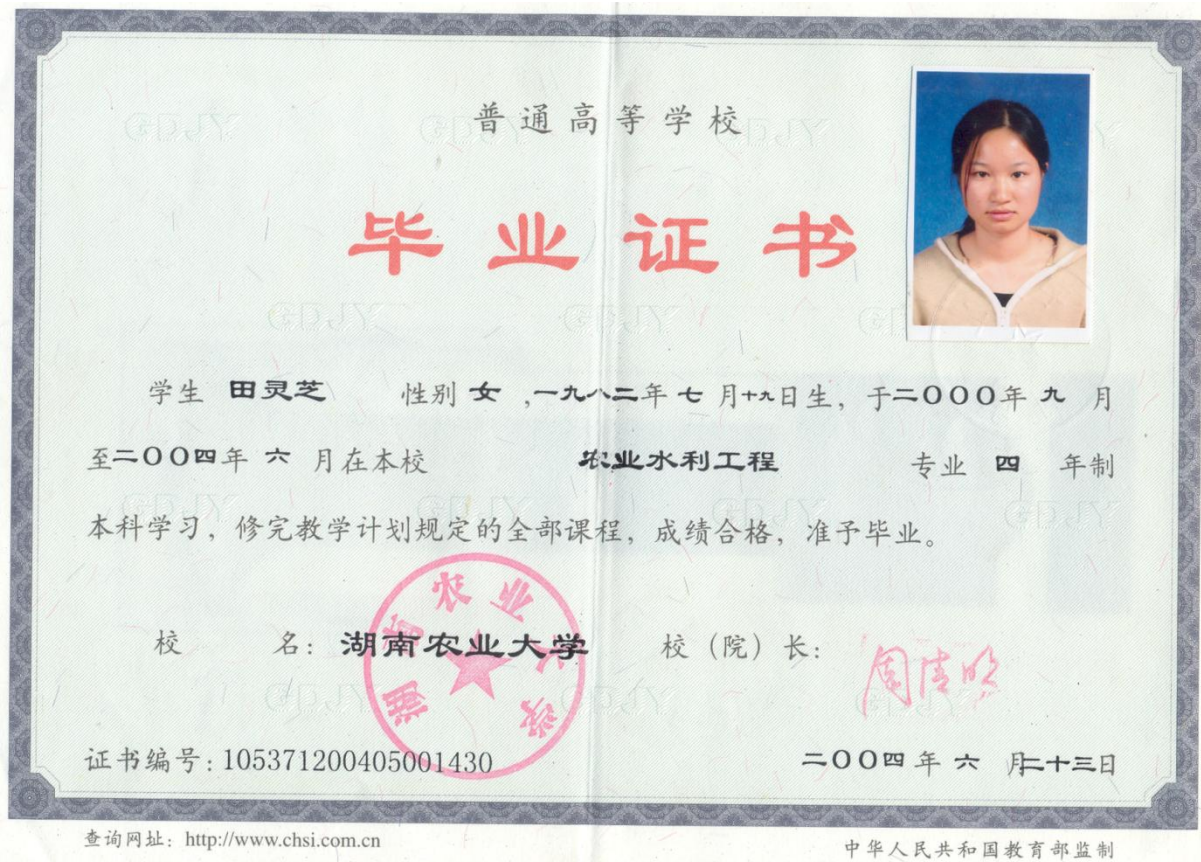 普通高等学校
毕业证书
学生 田灵芝 性别 女 ,一九八二年 七 月十九日生，于二〇〇〇年 九 月
至二〇〇四年 六 月在本校 农业水利工程 专业 四 年制
本科学习，修完教学计划规定的全部课程，成绩合格，准予毕业。
校 名：湖南农业大学 校（院）长：周清明
湖南农业大学
证书编号：105371200405001430 二〇〇四年 六 月二十三日
查询网址：http://www.chsi.com.cn 中华人民共和国教育部监制